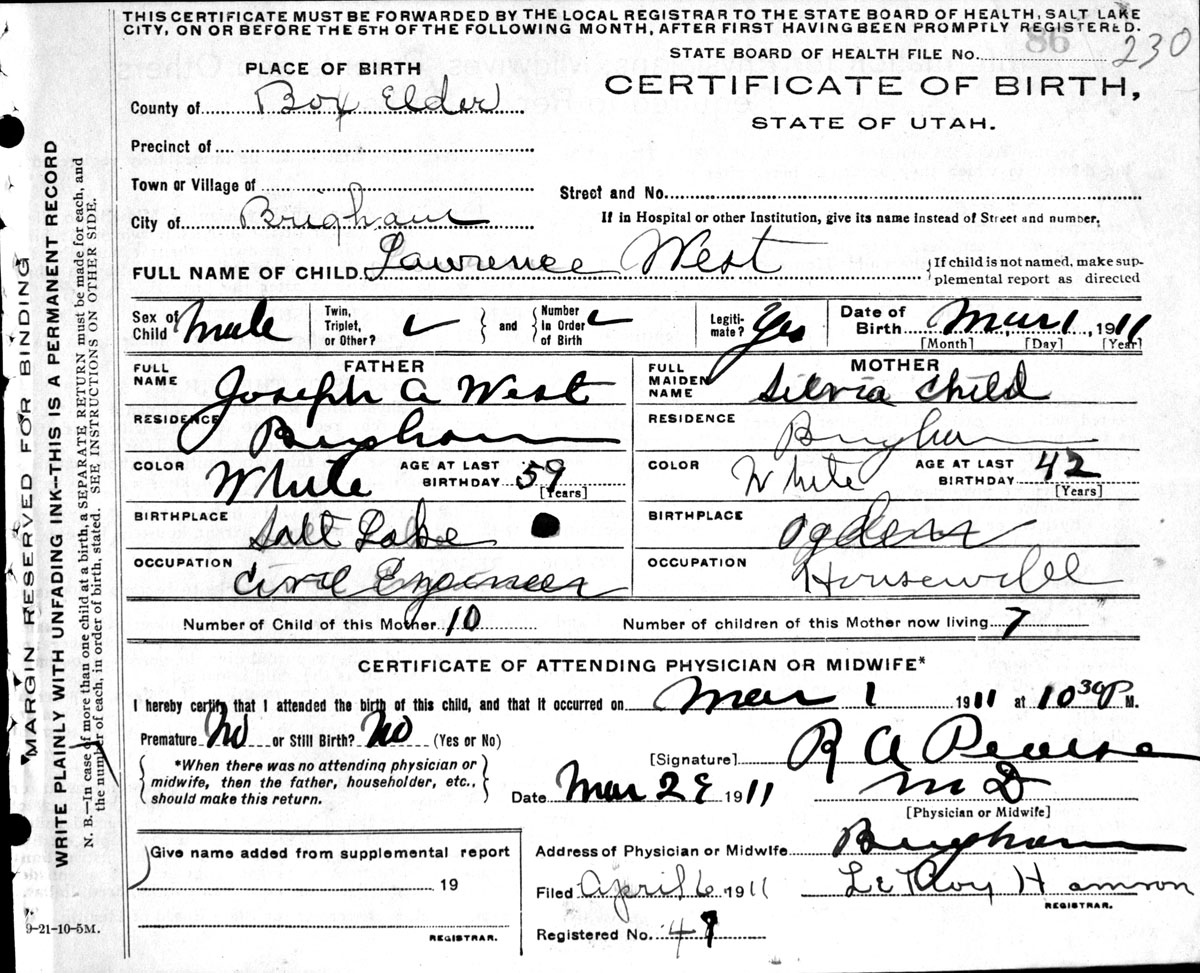 THIS CERTIFICATE MUST BE FORWARDED BY THE LOCAL REGISTRAR TO THE STATE BOARD OF HEALTH, SALT LAKE
CITY, ON OR BEFORE THE 5TH OF THE FOLLOWING MONTH, AFTER FIRST HAVING BEEN PROMPTLY REGISTERED.
STATE BOARD OF HEALTH FILE No. 86 230
PLACE OF BIRTH
CERTIFICATE OF BIRTH,
STATE OF UTAH.
County of Box Elder
Precinct of
Town or Village of
Street and No.
City of Brigham
If in Hospital or other Institution, give its name instead of Street and number.
FULL NAME OF CHILD. Lawrence West
{If child is not named, make sup-
plemental report as directed
Sex of Child Male
Twin, Triplet, or Other? ✓ } and { Number in Order of Birth ✓
Legiti-mate? Yes
Date of Birth Mar 1, 1911
[Month] [Day] [Year]
FATHER
MOTHER
FULL NAME Joseph A West
FULL MAIDEN NAME Silvia Child
RESIDENCE Brigham
RESIDENCE Brigham
COLOR White AGE AT LAST BIRTHDAY 59 [Years]
COLOR White AGE AT LAST BIRTHDAY 42 [Years]
BIRTHPLACE Salt Lake
BIRTHPLACE Ogden
OCCUPATION Civil Engineer
OCCUPATION Housewife
Number of Child of this Mother 10 Number of children of this Mother now living 7
CERTIFICATE OF ATTENDING PHYSICIAN OR MIDWIFE*
I hereby certify that I attended the birth of this child, and that it occurred on Mar 1 1911 at 10 30 P M.
Premature No or Still Birth? No (Yes or No)
[Signature] R A Pearse
M D
[Physician or Midwife]
*When there was no attending physician or
midwife, then the father, householder, etc.,
should make this return.
Date Mar 29 1911
Give name added from supplemental report
19
REGISTRAR.
Address of Physician or Midwife Brigham
Filed April 6 1911
LeRoy H
REGISTRAR.
Registered No. 49
9-21-10-5M.
MARGIN RESERVED FOR BINDING
WRITE PLAINLY WITH UNFADING INK—THIS IS A PERMANENT RECORD
N. B.—In case of more than one child at a birth a SEPARATE RETURN must be made for each, and
the number of each, in order of birth, stated. SEE INSTRUCTIONS ON OTHER SIDE.